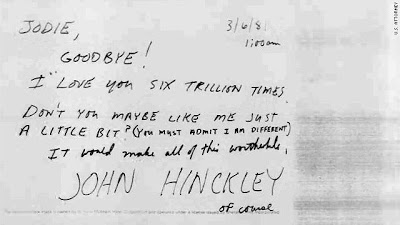 JODIE,
3/6/81
1:00am
GOODBYE!
I LOVE YOU SIX TRILLION TIMES.
DON'T YOU MAYBE LIKE ME JUST
A LITTLE BIT? (YOU MUST ADMIT I AM DIFFERENT)
IT would make all of this worthwhile.
JOHN HINCKLEY
of course